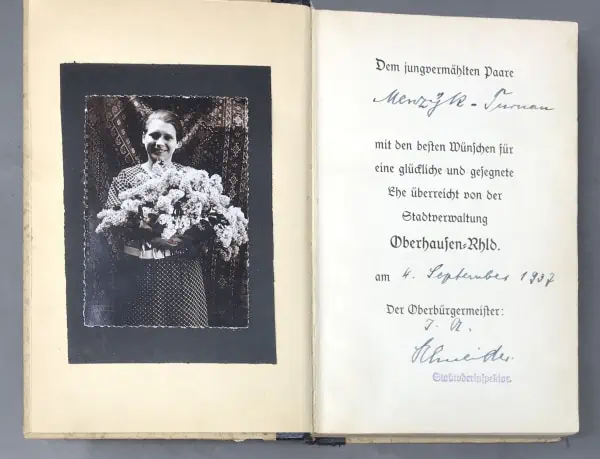 Dem jungvermählten Paare
Menzyk - Turnau
mit den besten Wünschen für
eine glückliche und gesegnete
Ehe überreicht von der
Stadtverwaltung
Oberhausen=Rhld.
am 4. September 1937
Der Oberbürgermeister:
I. A.
Schneider.
Stadtoberinspektor.